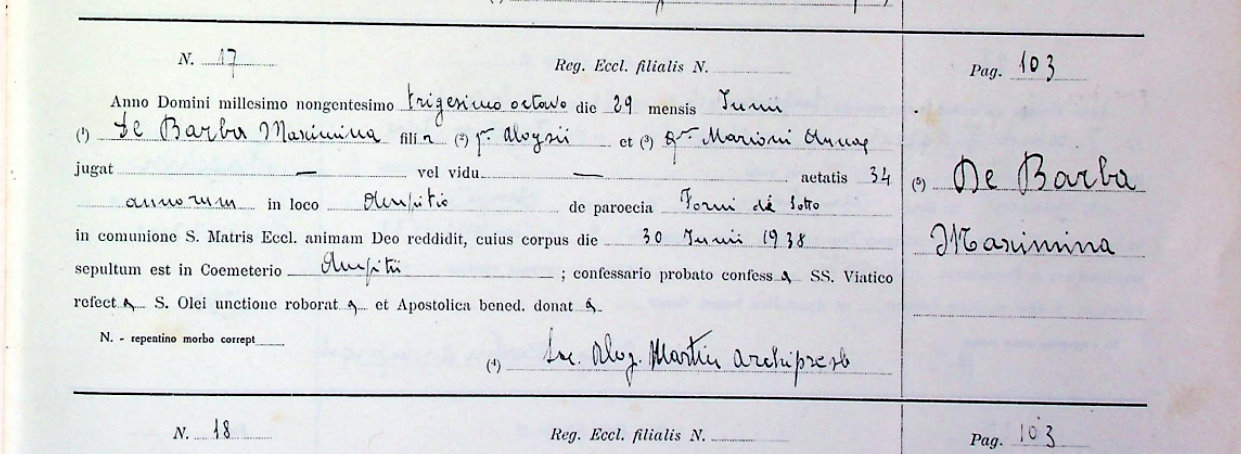 N. 17 Reg. Eccl. filialis N. Pag. 103
Anno Domini millesimo nongentesimo trigesimo octavo die 29 mensis Junii
(¹) De Barba Maximina filia (²) q.m Aloysii et (³) q.m Marioni Annae
jugat — vel vidu — aetatis 34
annorum in loco de paroecia Forni di Sotto
in comunione S. Matris Eccl. animam Deo reddidit, cuius corpus die 30 Junii 1938
sepultum est in Coemeterio ; confessario probato confess a SS. Viatico
refect a S. Olei unctione roborat a et Apostolica bened. donat a
N. - repentino morbo corrept
(⁴) Sac. Aloy. Martin Archipresb
(⁵) De Barba
Maximina
N. 18 Reg. Eccl. filialis N. Pag. 103